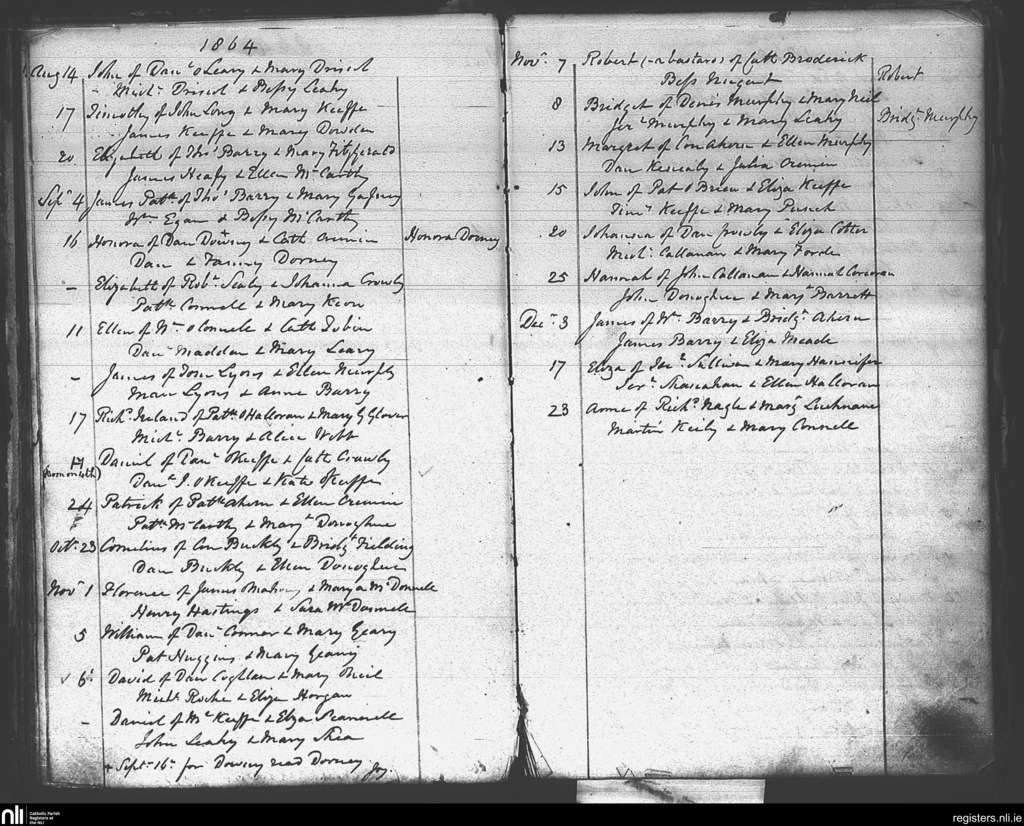 1864
Aug 14 John of Danl O'Leary & Mary Driscol
Michl Driscol & Bessy Leahy
17 Timothy of John Long & Mary Keeffe
James Keeffe & Mary Dowden
20 Elizabeth of Thos Barry & Mary Fitzgerald
James Heafy & Ellen McCarthy
Sepr 4 James Patk of Thos Barry & Mary Gaffney
Wm Egan & Bessy McCarthy
16 Honora of Dan Downy & Cath Cremin Honora Dorney
Dan & Fanny Dorney
– Elizabeth of Robt Sealy & Johanna Crowly
Patk Connell & Mary Keon
11 Ellen of Wm O'Connell & Cath Tobin
Danl Madden & Mary Leary
– James of Tom Lyons & Ellen Murphy
Mau Lyons & Anne Barry
17 Richd Ireland of Patk O'Halloran & Mary G Glover
Michl Barry & Alice Webb
Daniel of Danl O'Keeffe & Cath Crowly
(born on 4th)
Danl J. O'Keeffe & Kate O'Keeffe
24 Patrick of Patk Ahern & Ellen Cremin
Patk McCarthy & Margt Donoghue
Octr 23 Cornelius of Con Buckly & Bridgt Fielding
Dan Buckly & Ellen Donoghue
Novr 1 Florence of James Mahony & Mary A McDonnell
Henry Hastings & Sara McDonnell
5 William of Danl Connor & Mary Geary
Pat Huggins & Mary Geary
6 David of Dan Coghlan & Mary Neil
Michl Roche & Eliza Horgan
– Daniel of Ml Keeffe & Eliza Scannell
John Leahy & Mary Shea
+ Sept 16th for Downy read Dorney
Novr 7 Robert (-a bastard) of Cath Broderick Robert
Bess Nugent
8 Bridget of Denis Murphy & Mary Neil Bridgt Murphy
Jerh Murphy & Mary Leahy
13 Margret of Con Ahern & Ellen Murphy
Dan Keneally & Julia Cremin
15 John of Pat O'Brien & Eliza Keeffe
Timy Keeffe & Mary Punch
20 Johanna of Dan Crowly & Eliza Cotter
Michl Callanan & Mary Forde
25 Hannah of John Callanan & Hannah Corcoran
John Donoghue & Margt Barrett
Decr 3 James of Wm Barry & Bridgt Ahern
James Barry & Eliza Meade
17 Eliza of Jas Sullivan & Mary Hannifer
Jerh Shanahan & Ellen Halloran
23 Anne of Richd Nagle & Margt Luchnane
Martin Keily & Mary Connell
nli Catholic Parish
Registers at
the NLI
registers.nli.ie